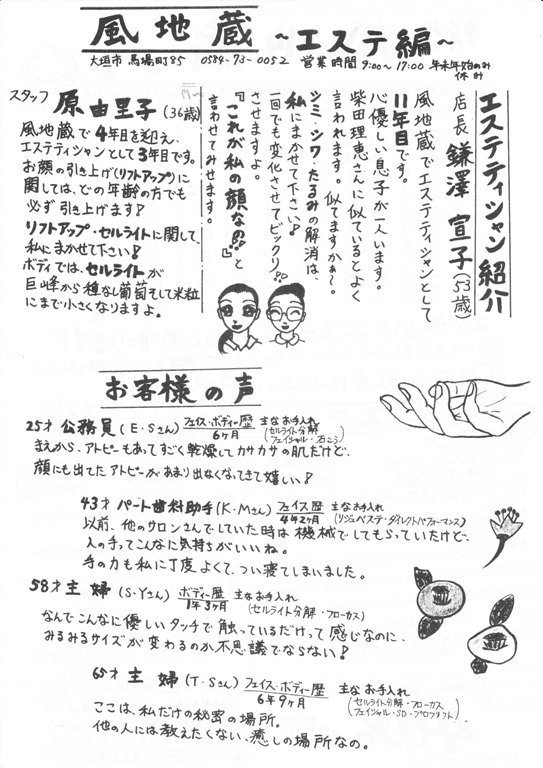 風地蔵 ~エステ編~
大垣市 馬場町85 0584-73-0052 営業時間 9:00~17:00 年末年始のみ休み
エステティシャン紹介
店長 鎌澤 宣子(53歳)
風地蔵でエステティシャンとして
11年目です。
心優しい息子が一人います。
柴田理恵さんに似ているとよく
言われます。似てますかぁ~。
シミ・シワ・たるみの解消は、
私にまかせて下さい!
一回でも変化させてビックリ!!
させますよ。
『これが私の顔なの!!』と
言わせてみせます。
スタッフ 原 由里子(36歳)
風地蔵で4年目を迎え、
エステティシャンとして3年目です。
お顔の引き上げ(リフトアップ)に
関しては、どの年齢の方でも
必ず引き上げます!
リフトアップ・セルライトに関して、
私にまかせて下さい!
ボディでは、セルライトが
巨峰から種なし葡萄そして米粒
にまで小さくなりますよ。
お客様の声
25才 公務員(E・Sさん) フェイス・ボディー歴 6ヶ月 主なお手入れ(セルライト分解・フェイシャル・石ころ)
まえから、アトピーもあってすごく乾燥してカサカサの肌だけど、
顔にも出てたアトピーが、あまり出なくなってきて嬉しい!
43才 パート歯科助手(K・Mさん) フェイス歴 4年2ヶ月 主なお手入れ(リジュベステ・ダイレクトパフォーマンス)
以前、他のサロンさんでしていた時は機械でしてもらっていたけど、
人の手ってこんなに気持ちがいいね。
手の力も私に丁度よくて、つい寝てしまいました。
58才 主婦(S・Yさん) ボディー歴 1年3ヶ月 主なお手入れ(セルライト分解・フローカス)
なんでこんなに優しいタッチで触っているだけって感じなのに、
みるみるサイズが変わるのか不思議でならない!
65才 主婦(T・Sさん) フェイス・ボディー歴 6年9ヶ月 主なお手入れ(セルライト分解・フローカス フェイシャル・SD・プロフリフト)
ここは、私だけの秘密の場所。
他の人には教えたくない、癒しの場所なの。